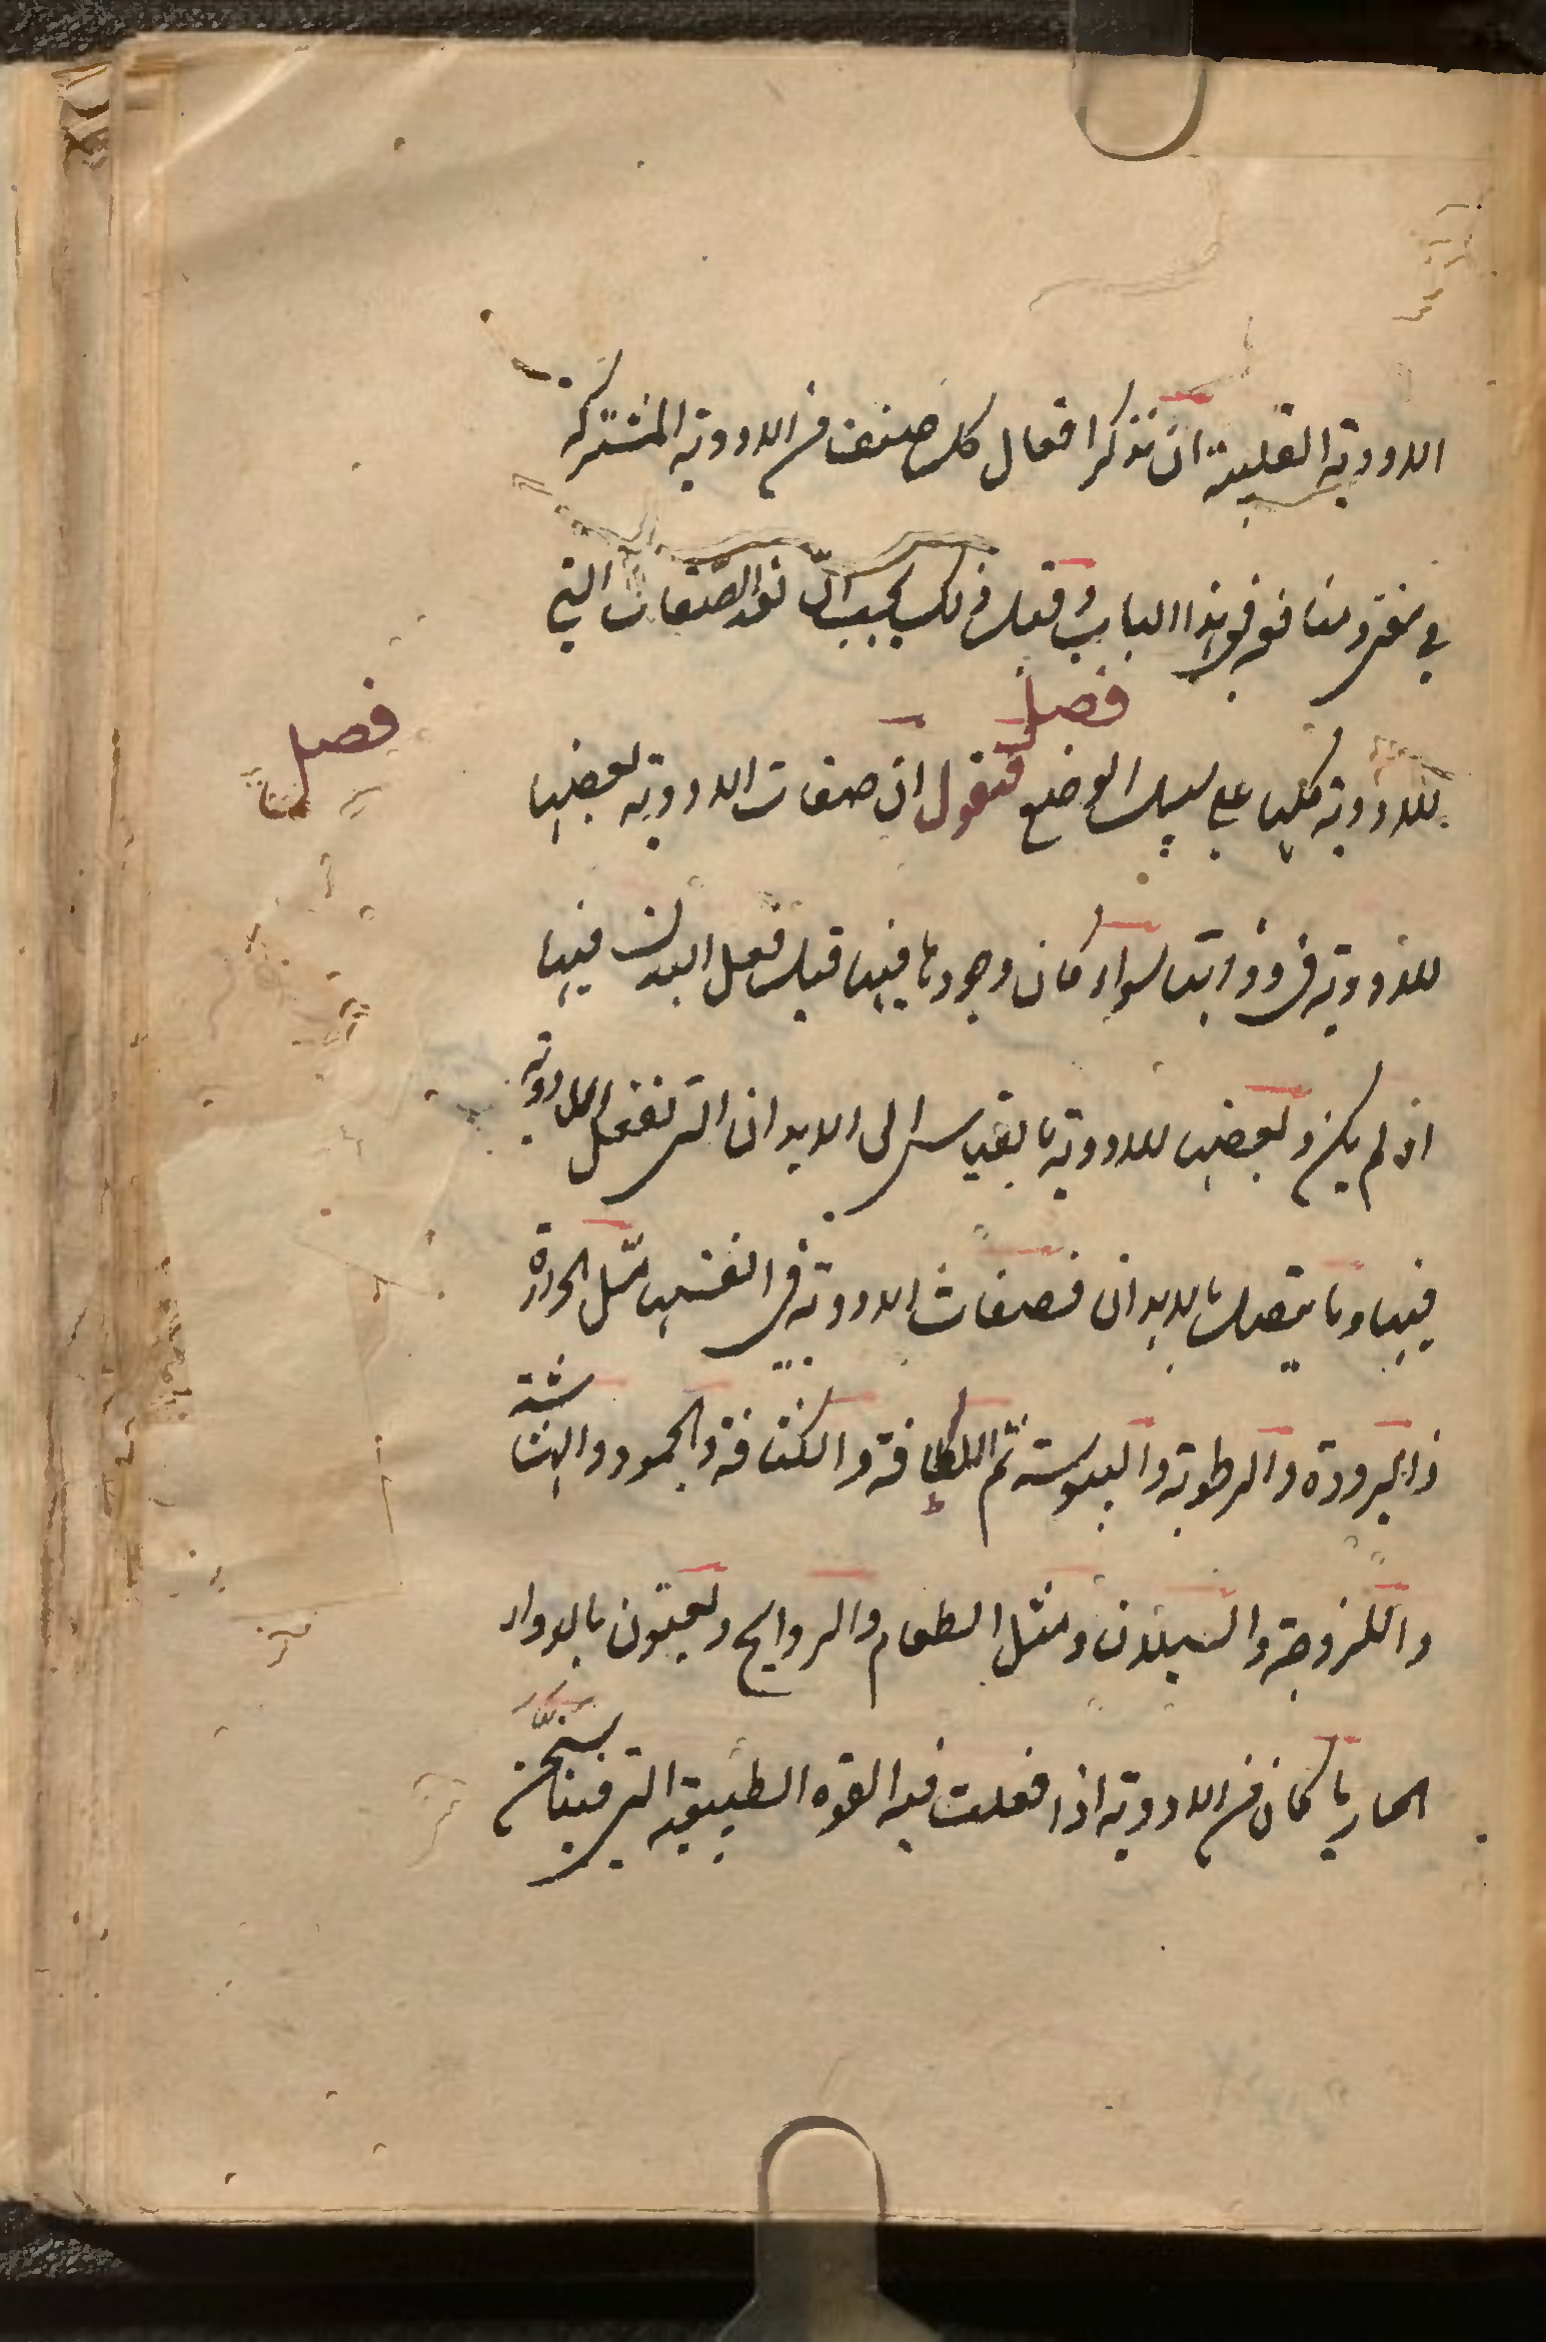 الادوية القلبية ان نذكر افعال كل صنف من الادوية المشتركة
في نفق ومنافعه في هذا الباب وقبل ذلك يجب ان نعد الصفات التي
فصل
للادوية كلها على سبيل الوضع فنقول ان صفات الادوية بعضها
فصل
للادوية في ذواتها سواء كان وجودها فيها قبل فعل البدن فيها
اذ لم يكن وبعضها للادوية بالقياس الى الابدان التي تفعل الادوية
فيها وما يتصل بالابدان فصفات الادوية في انفسها مثل الحرارة
والبرودة والرطوبة واليبوسة ثم اللطافة والكثافة والجمود والهشاشة
واللزوجة والسيلان ومثل الطعام والروايح ويعنون بالدواء
الحار ما كان من الادوية اذا فعلت فيه القوة الطبيعية التي فينا سخن